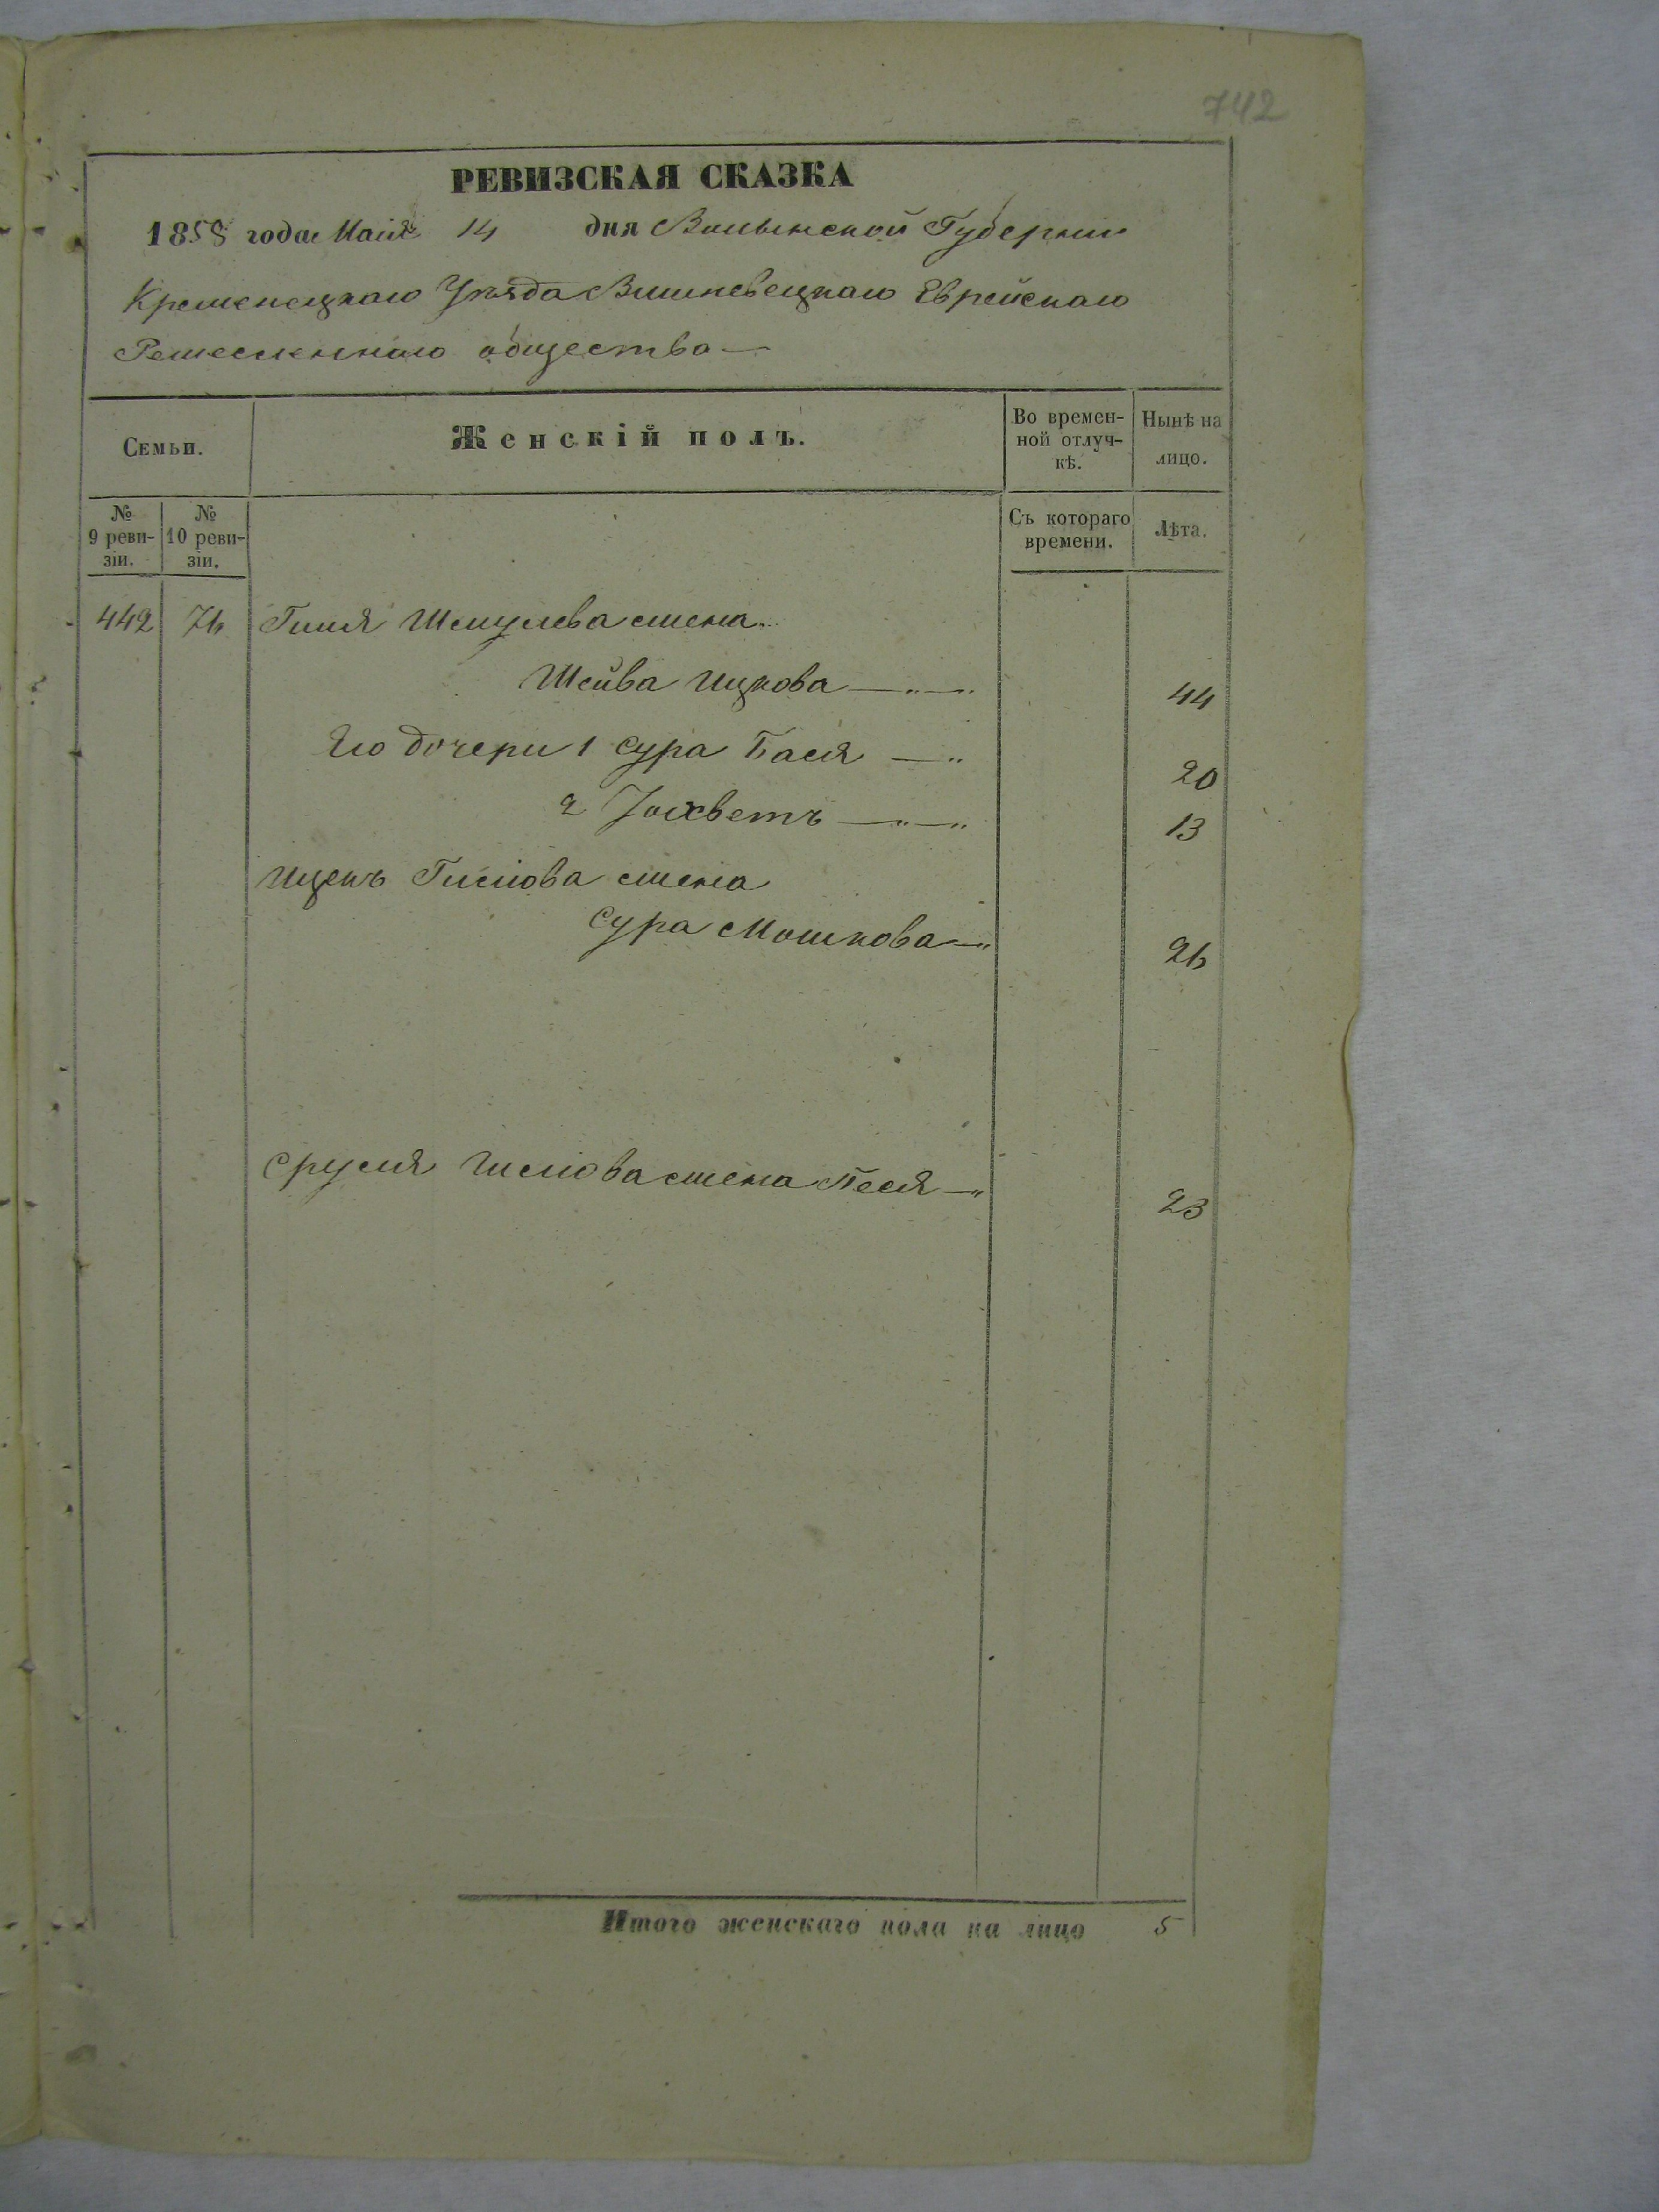 742
РЕВИЗСКАЯ СКАЗКА
1858 года Маія 14 дня Волынской Губерніи
Кременецкаго Уѣзда Вишневецкаго Еврейскаго
Ремесленнаго общества —
Семьи.
Женскій полъ.
Во времен-
ной отлуч-
кѣ.
Нынѣ на
лицо.
№
9 реви-
зіи.
№
10 реви-
зіи.
Съ котораго
времени.
Лѣта.
442 76 Гиля Шмулева жена
Шейва Ицкова — 44
Его дочери 1 Сура Бася — 20
2 Іохветъ — 13
Ицекъ Гилiова жена
Сура Мошкова — 26
Сруля Гилiова жена Песя — 23
Итого женскаго пола на лицо 5